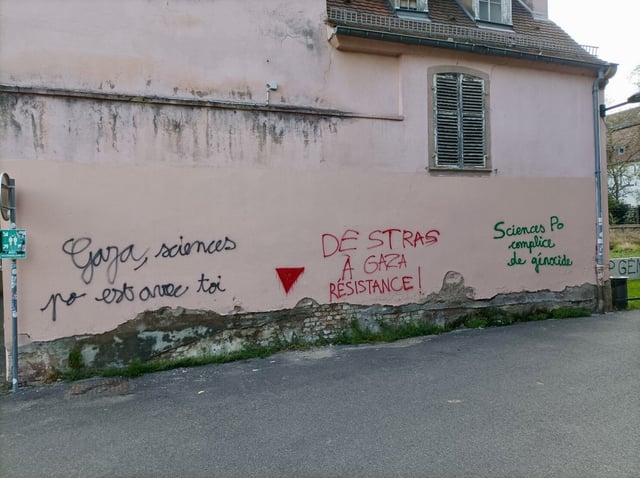 Gaza, sciences
po est avec toi
DE STRAS
À GAZA
RÉSISTANCE !
Sciences Po
complice
de génocide
P GEN